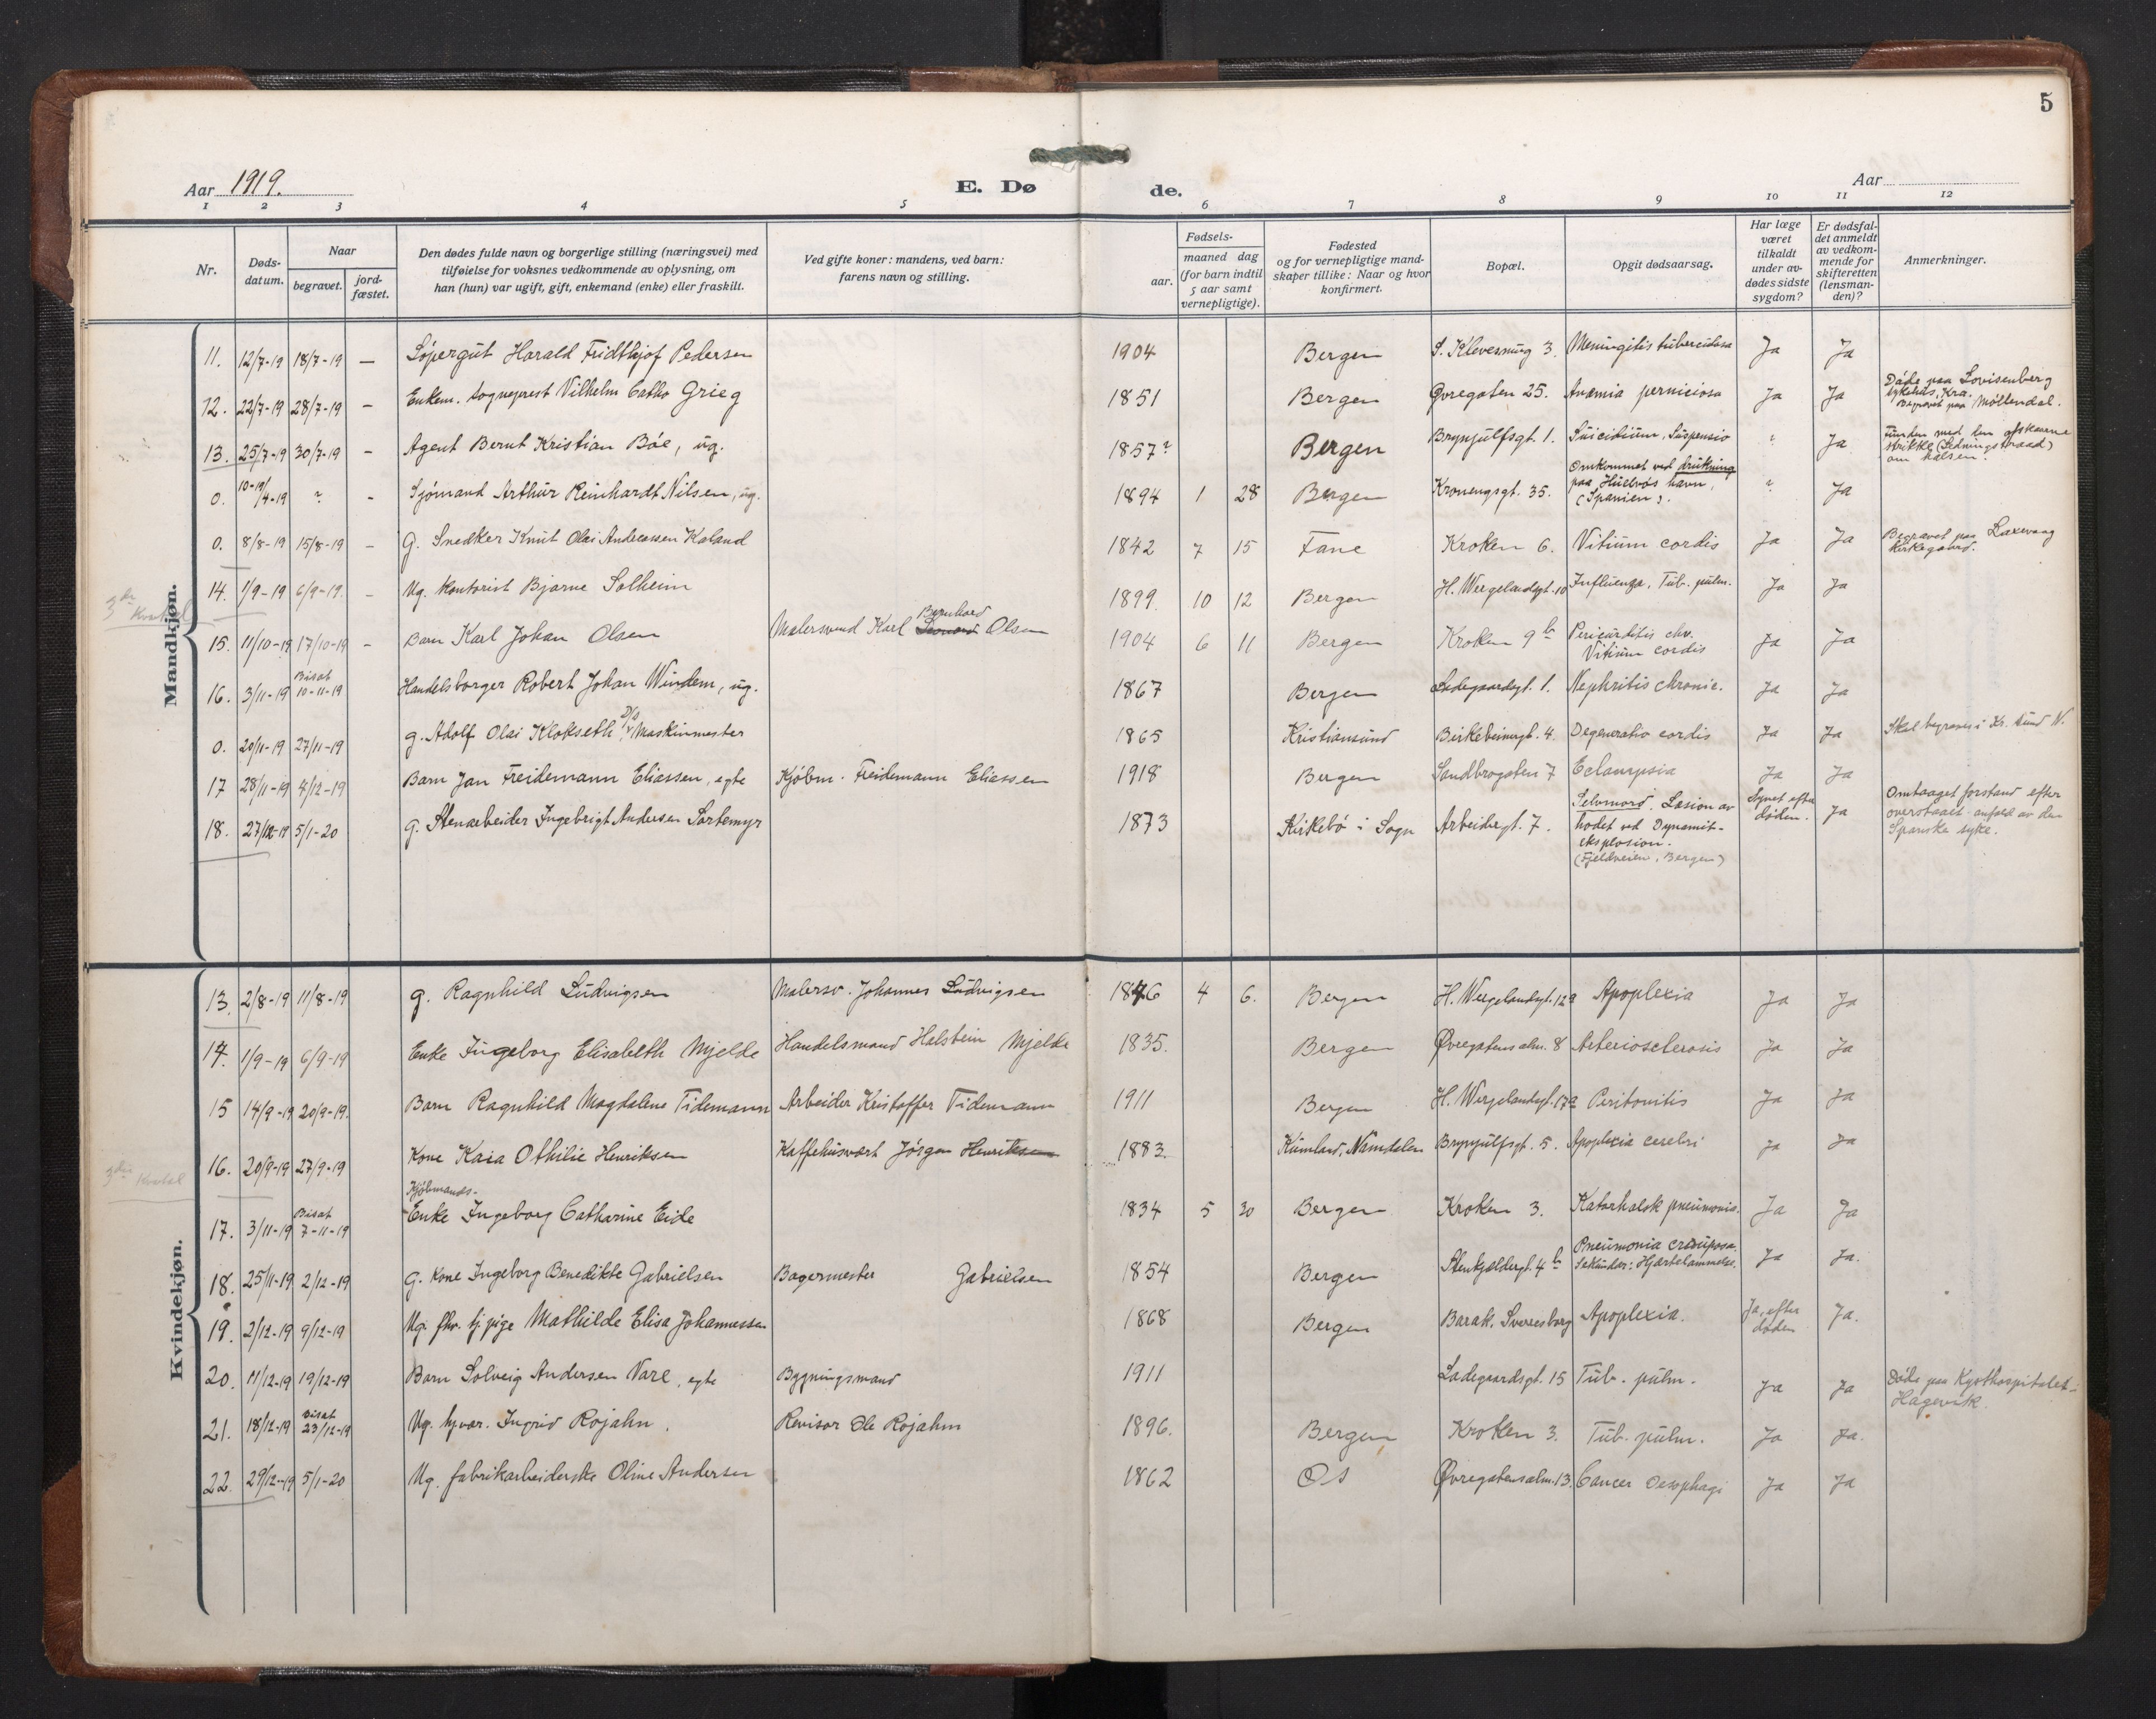 5
Aar 1919.
E. Dø
de.
Aar
1 2 3 4 5 6 7 8 9 10 11 12
Nr.
Døds-
datum.
Naar
begravet.
jord-
fæstet.
Den dødes fulde navn og borgerlige stilling (næringsvei) med
tilføielse for voksnes vedkommende av oplysning, om
han (hun) var ugift, gift, enkemand (enke) eller fraskilt.
Ved gifte koner: mandens, ved barn:
farens navn og stilling.
Fødsels-
aar.
maaned dag
(for barn indtil
5 aar samt
vernepligtige).
Fødested
og for vernepligtige mand-
skaper tillike: Naar og hvor
konfirmert.
Bopæl.
Opgit dødsaarsag.
Har læge
været
tilkaldt
under av-
dødes sidste
sygdom?
Er dødsfal-
det anmeldt
av vedkom-
mende for
skifteretten
(lensman-
den)?
Anmerkninger.
Mandkjøn.
3die Kvartal
11. 12/7-19 18/7-19 — Løpergut Harald Fridthjof Pedersen 1904 Bergen 3. Meningitis tuberculosa Ja Ja
12. 22/7-19 28/7-19 – Enkem. sogneprest Vilhelm Catho Grieg 1851 Bergen Øvregaten 25. Anæmia perniciosa Ja Ja Døde paa Lovisenberg
sykehus, Kra.
Begravet paa Møllendal.
13. 25/7-19 30/7-19 – Agent Bernt Kristian Bøe, ug. 1857? Bergen Brynjulfsgt. 1. Suicidium, Suspensio ? Ja Funden med en afskaaren
strikke (Ledningstraad)
om halsen.
0. 10-19/4-19 ? – Sjømand Arthur Reinhardt Nilsen, ug. 1894 1 28 Bergen Kronengsgt. 35. Omkommet ved drukning
paa Huelvas havn,
(Spanien). ? Ja
0. 8/8-19 15/8-19 – G. Snedker Knut Olai Andreassen Kaland 1842 7 15 Fane Kroken 6. Vitium cordis Ja Ja Begravet paa Laxevaag
kirkegaard.
14. 1/9-19 6/9-19. – Ug. kontorist Bjarne Solheim 1899. 10 12 Bergen H. Wergelandsgt. 10 Influenza, Tub. pulm. Ja Ja
15. 11/10-19 17/10-19 – Barn Karl Johan Olsen Malersvend Karl Bernhard Olsen 1904 6 11 Bergen Kroken 9 b Pericarditis chr.
Vitium cordis Ja Ja
16. 3/11-19 Bisat
10-11-19 Handelsborger Robert Johan Windem, ug. 1867 Bergen Ladegaardsgt. 1. Nephritis chronic. Ja Ja
0. 20/11-19 27/11-19 g. Adolf Olai Klokseth, D/S Maskinmester 1865 Kristiansund Birkebeinergt. 4. Degeneratio cordis Ja Ja Skal begraves i Kr. sund N.
17 28/11-19 4/12-19 Barn Jan Freidemann Eliassen, egte Kjøbm. Freidemann Eliassen 1918 Bergen Sandbrogaten 7 Eclampsia Ja Ja
18. 27/12-19 5/1-20 g. Stenarbeider Ingebrigt Andersen Sortemyr 1873 Kirkebø i Sogn Arbeidergt. 7. Selvmord. Læsion av
hodet ved Dynamit-
eksplosion.
(Fjeldveien, Bergen) Synet efter
døden. Ja Omtaaget forstand efter
overstaaet anfald av den
Spanske syke.
Kvindekjøn.
3die Kvartal
13. 2/8-19 11/8-19 g. Ragnhild Ludvigsen Malersv. Johannes Ludvigsen 1846 4 6. Bergen H. Wergelandsgt. 12a Apoplexia Ja Ja
14. 1/9-19 6/9-19 Enke Ingeborg Elisabeth Mjelde Handelsmand Halstein Mjelde 1835. Bergen Øvregatens alm. 8 Arteriosclerosis Ja Ja
15 14/9-19 20/9-19. Barn Ragnhild Magdalene Tidemann Arbeider Kristoffer Tidemann 1911 Bergen H. Wergelandsgt. 17a Peritonitis Ja Ja
16. 20/9-19 27/9-19 Kone Kaia Othilie Henriksen Kaffehusvært Jørgen Henriksen 1883. Namdalen Brynjulfsgt. 5. Apoplexia cerebri Ja Ja
17. 3/11-19 Bisat
7-11-19 Kjøbmands-
Enke Ingeborg Catharine Eide 1834 5 30 Bergen Kroken 3. Katarhalsk pneumonia. Ja Ja
18. 25/11-19 2/12-19 G. Kone Ingeborg Benedikte Gabrielsen Bagermester Gabrielsen 1854 Bergen Stenkjeldergt. 4 b Pneumonia crouposa.
Sekundær: Hjertelammelse. Ja Ja.
19. 2/12-19 9/12-19 Ug. fhv. tj.pige Mathilde Elisa Johannessen 1868 Bergen Barak. Sverresborg Apoplexia. Ja, efter
døden Ja.
20. 11/12-19 19/12-19 Barn Solveig Andersen Vare, egte Bygningsmand 1911 Ladegaardsgt. 15 Tub. pulm. Ja Ja Døde paa Kysthospitalet
Hagevik.
21. 18/12-19 Bisat
23/12-19 Ug. hj.vær. Ingrid Rojahn. Revisor Ole Rojahn 1896. Bergen Kroken 3. Tub. pulm. Ja Ja.
22. 29/12-19 5/1-20 Ug. fabrikarbeiderske Oline Andersen 1862 Os Øvregatens alm. 13. Cancer oesophagi Ja Ja